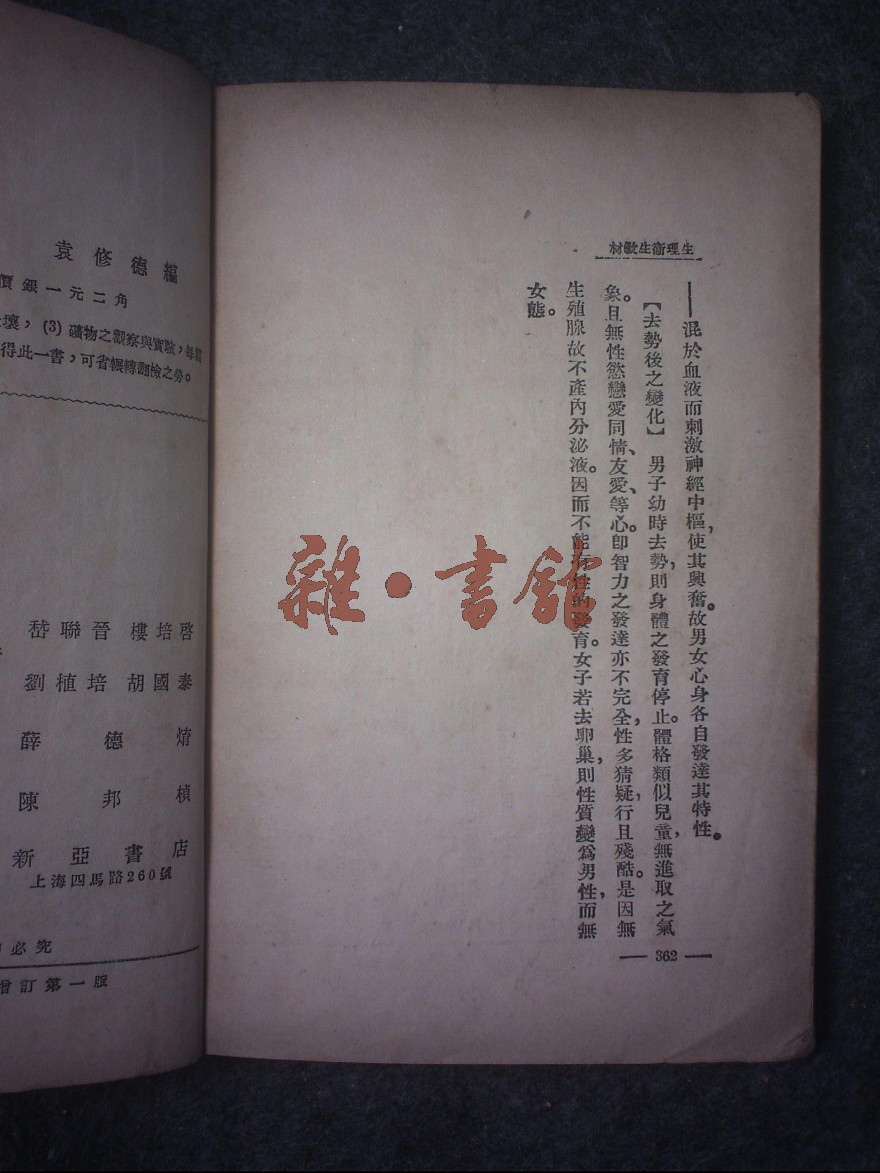 生理衞生敎材
——混於血液而刺激神經中樞，使其興奮。故男女心身各自發達其特性。
【去勢後之變化】　男子幼時去勢，則身體之發育停止。體格類似兒童，無進取之氣
象。且無性慾戀愛同情、友愛、等心。卽智力之發達亦不完全，性多猜疑，行且殘酷。是因無
生殖腺故不產內分泌液。因而不能有性的發育。女子若去卵巢，則性質變爲男性，而無
女態。
— 362 —
雜·書館
袁修德編
價銀一元二角
壤，(3) 礦物之觀察與實驗，每
得此一書，可省輾轉翻檢之勞。
嵆聯晉 樓培啓
劉植培 胡國泰
薛德焴
陳邦楨
新亞書店
上海四馬路260號
必究
增訂第一版